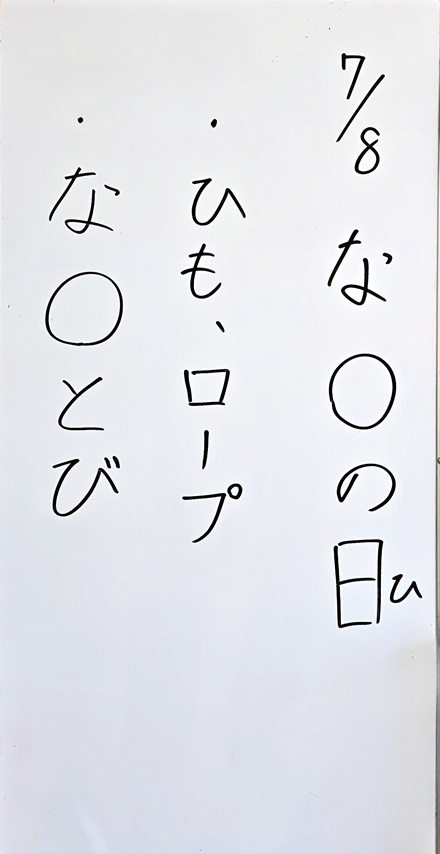 7/8 な〇の日ひ
・ひも、ロープ
・な〇とび